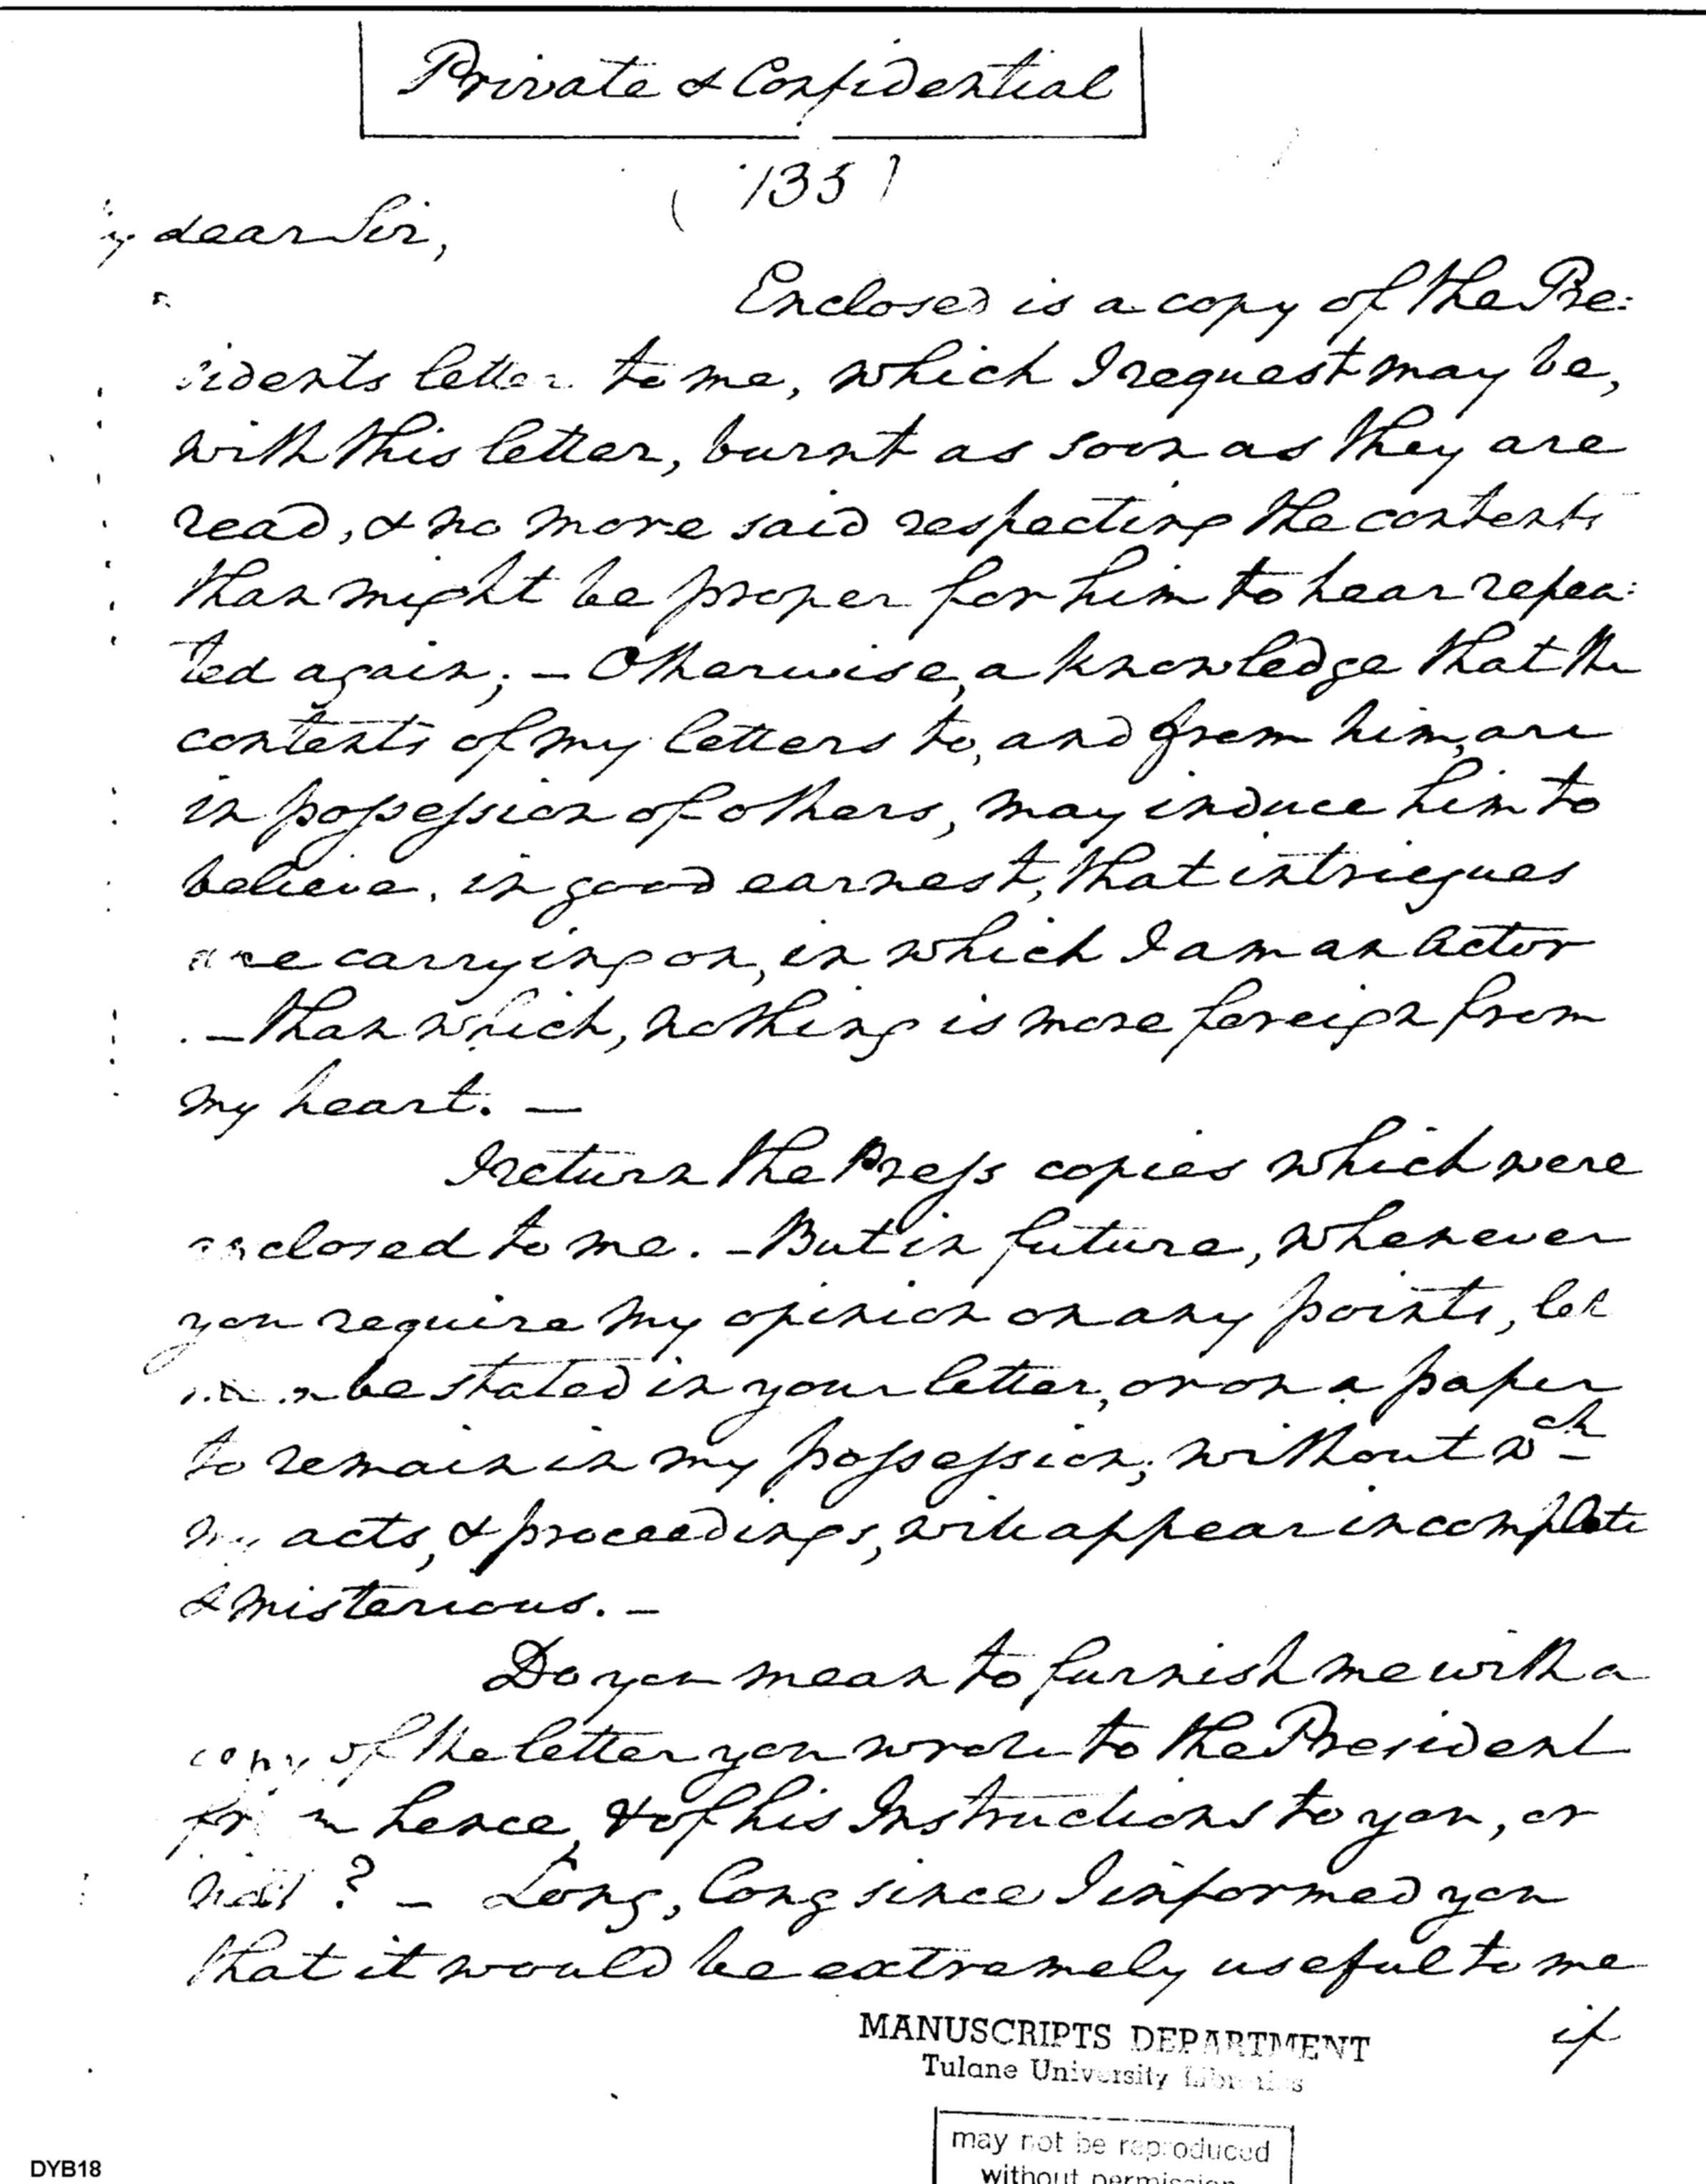 Private & Confidential
(135)
dear Sir,
Enclosed is a copy of the Pre:
sidents letter to me, which I request may be,
with this letter, burnt as soon as they are
read, & no more said respecting the contents
than might be proper for him to hear repea:
ted again; — Otherwise, a knowledge that the
contents of my letters to, and from him, are
in possession of others, may induce him to
believe, in good earnest, that intriegues
are carrying on, in which I am an Actor
— than which, nothing is more foreign from
my heart. —
I return the Press copies which were
enclosed to me. — But in future, whenever
you require my opinion on any points, let
be stated in your letter, or on a paper
to remain in my possession; without wch
my acts, & proceedings, will appear incomplete
& misterious. —
Do you mean to furnish me with a
copy of the letter you wrote to the President
from hence, & of his Instructions to you, or
not? — Long, long since I informed you
that it would be extremely useful to me
if
MANUSCRIPTS DEPARTMENT
Tulane University Libraries
may not be reproduced
without permission
DYB18